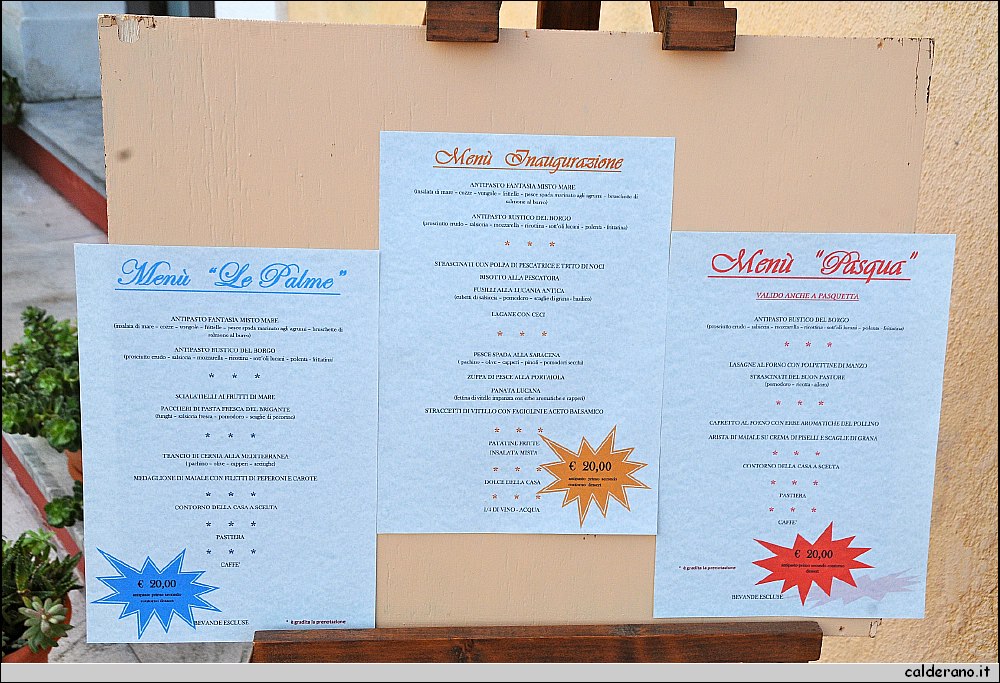 Menù "Le Palme"
ANTIPASTO FANTASIA MISTO MARE
(insalata di mare - cozze - vongole - frittelle - pesce spada marinato agli agrumi - bruschette di
salmone al burro)
ANTIPASTO RUSTICO DEL BORGO
(prosciutto crudo - salsiccia - mozzarella - ricottina - sott'oli lucani - polenta - frittatina)
* * *
SCIALATIELLI AI FRUTTI DI MARE
PACCHERI DI PASTA FRESCA DEL BRIGANTE
(funghi - salsiccia fresca - pomodoro - scaglie di pecorino)
* * *
TRANCIO DI CERNIA ALLA MEDITERRANEA
( pachino - olive - capperi - acciughe)
MEDAGLIONE DI MAIALE CON FILETTI DI PEPERONI E CAROTE
* * *
CONTORNO DELLA CASA A SCELTA
* * *
PASTIERA
* * *
CAFFE'
€ 20,00
antipasto primo secondo
contorno dessert
BEVANDE ESCLUSE
* è gradita la prenotazione
Menù Inaugurazione
ANTIPASTO FANTASIA MISTO MARE
(insalata di mare - cozze - vongole - frittelle - pesce spada marinato agli agrumi - bruschette di
salmone al burro)
ANTIPASTO RUSTICO DEL BORGO
(prosciutto crudo - salsiccia - mozzarella - ricottina - sott'oli lucani - polenta - frittatina)
* * *
STRASCINATI CON POLPA DI PESCATRICE E TRITO DI NOCI
RISOTTO ALLA PESCATORA
FUSILLI ALLA LUCANIA ANTICA
(cubetti di salsiccia - pomodoro - scaglie di grana - basilico)
LAGANE CON CECI
* * *
PESCE SPADA ALLA SARACENA
( pachino - olive - capperi - pinoli - pomodori secchi)
ZUPPA DI PESCE ALLA PORTAIOLA
PANATA LUCANA
(fettina di vitello impanata con erbe aromatiche e capperi)
STRACCETTI DI VITELLO CON FAGIOLINI E ACETO BALSAMICO
* * *
PATATINE FRITTE
INSALATA MISTA
* * *
DOLCE DELLA CASA
* * *
1/4 DI VINO - ACQUA
€ 20,00
antipasto primo secondo
contorno dessert
Menù "Pasqua"
VALIDO ANCHE A PASQUETTA
ANTIPASTO RUSTICO DEL BORGO
(prosciutto crudo - salsiccia - mozzarella - ricottina - sott'oli lucani - polenta - frittatina)
* * *
LASAGNE AL FORNO CON POLPETTINE DI MANZO
STRASCINATI DEL BUON PASTORE
(pomodoro - ricotta - alloro)
* * *
CAPRETTO AL FORNO CON ERBE AROMATICHE DEL POLLINO
ARISTA DI MAIALE SU CREMA DI PISELLI E SCAGLIE DI GRANA
* * *
CONTORNO DELLA CASA A SCELTA
* * *
PASTIERA
* * *
CAFFE'
€ 20,00
antipasto primo secondo contorno
dessert
* è gradita la prenotazione
BEVANDE ESCLUSE
calderano.it